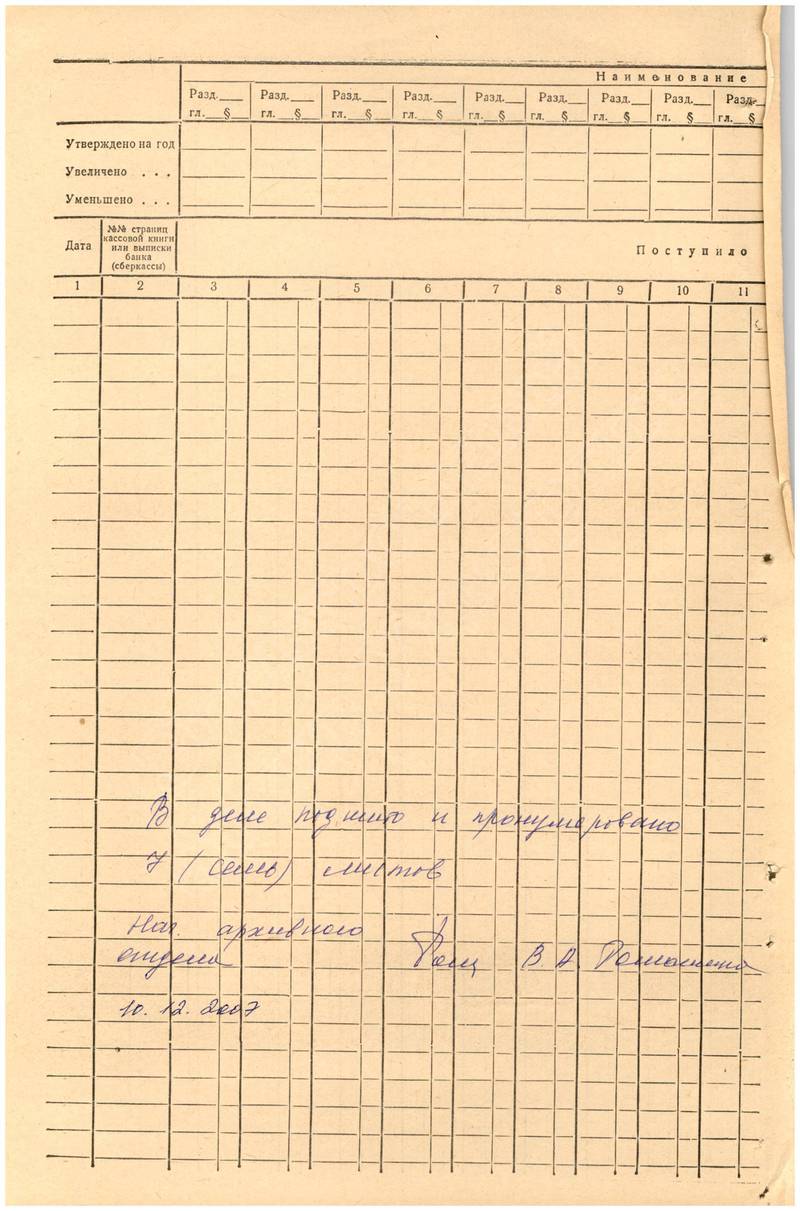 Наименование
Разд.___ Разд.___ Разд.___ Разд.___ Разд.___ Разд.___ Разд.___ Разд.___ Разд.
гл.___§ гл.___§ гл.___§ гл.___§ гл.___§ гл.___§ гл.___§ гл. § гл. §
Утверждено на год
Увеличено . . .
Уменьшено . . .
Дата
№№ страниц
кассовой книги
или выписки
банка
(сберкассы)
Поступило
1 2 3 4 5 6 7 8 9 10 11
В деле подшито и пронумеровано
7 (семь) листов
Нач. архивного
отдела В. А.
10.12.2007